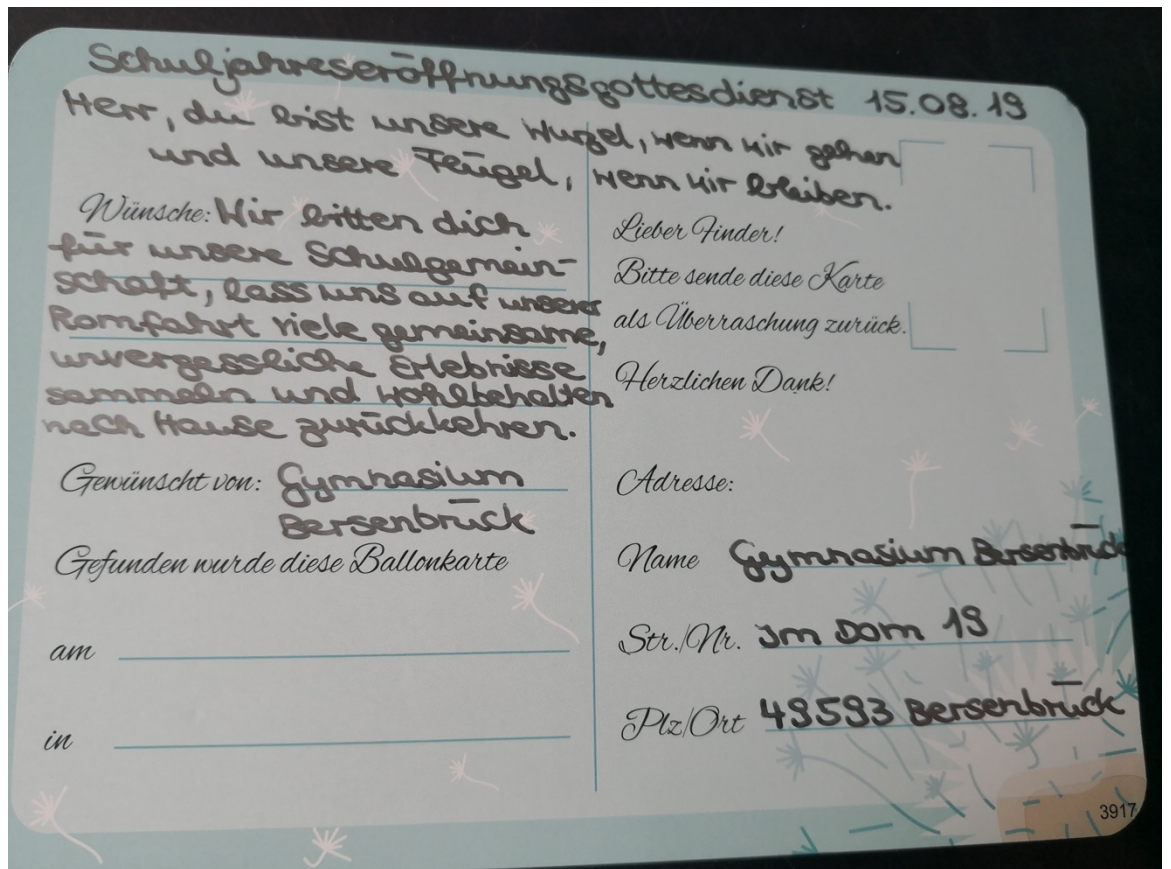 Schuljahreseröffnungsgottesdienst 15.08.19
Herr, du bist unsere Wurzel, wenn wir gehen
und unsere Flügel, wenn wir bleiben.
Wünsche: Wir bitten dich
für unsere Schulgemein-
schaft, lass uns auf unserer
Romfahrt viele gemeinsame,
unvergessliche Erlebnisse
sammeln und wohlbehalten
nach Hause zurückkehren.
Gewünscht von: Gymnasium
Bersenbrück
Gefunden wurde diese Ballonkarte
am
in
Lieber Finder!
Bitte sende diese Karte
als Überraschung zurück.
Herzlichen Dank!
Adresse:
Name Gymnasium Bersenbrück
Str./Nr. Im Dom 19
Plz/Ort 49593 Bersenbrück
3917